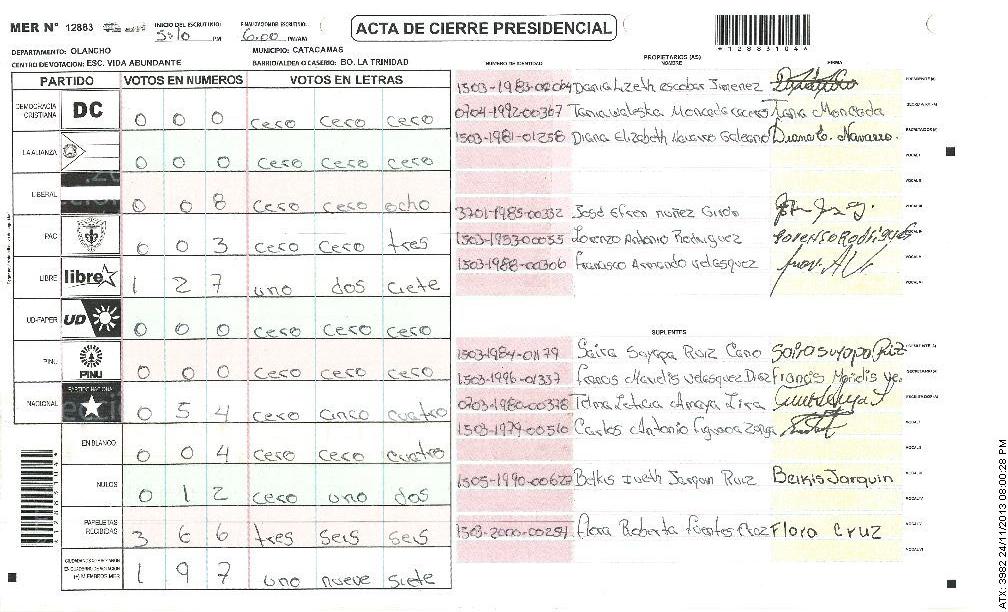 MER Nº 12883
INICIO DEL ESCRUTINIO: 5:10 PM
FINALIZACION DEL ESCRUTINIO: 6:00 PM/AM
ACTA DE CIERRE PRESIDENCIAL
12883104
DEPARTAMENTO: OLANCHO
MUNICIPIO: CATACAMAS
CENTRO DE VOTACION: ESC. VIDA ABUNDANTE
BARRIO/ALDEA O CASERIO: BO. LA TRINIDAD
PARTIDO VOTOS EN NUMEROS VOTOS EN LETRAS
DEMOCRACIA CRISTIANA DC 0 0 0 cero cero cero
LA ALIANZA 0 0 0 cero cero cero
LIBERAL 0 0 8 cero cero ocho
PAC 0 0 3 cero cero tres
LIBRE libre 1 2 7 uno dos ciete
UD-FAPER UD 0 0 0 cero cero cero
PINU PINU 0 0 0 cero cero cero
NACIONAL PARTIDO NACIONAL 0 5 4 cero cinco cuatro
EN BLANCO 0 0 4 cero cero cuatro
NULOS 0 1 2 cero uno dos
PAPELETAS RECIBIDAS 3 6 6 tres seis seis
(+) MIEMBROS MER 1 9 7 uno nueve siete
PROPIETARIOS (AS)
NUMERO DE IDENTIDAD NOMBRE FIRMA
Dania Lizeth escobar Jimenez PRESIDENTE(A)
0704-1992-00367 Tania waleska Moncada Tania Moncada
1503-1981-01258 Diana Elizabeth Navarro Galeano Diana E. Navarro.
3701-1985-00332 José Efren nuñez
1503-1953-00055 Lorenzo Antonio Rodriguez Lorenso Rodriguez
1503-1988-00306 Francisco Armando velasquez
SUPLENTES
1503-1984-01179 Saira Suyapa Ruiz Cano Saira suyapa Ruiz
1503-1996-01337 Velasquez Diaz Francis
0703-1980-00378 Telma Leticia Amaya Lira
1503-1979-00516 Carlos Antonio
1505-1990-00627 Belkis Iveth Jarquin Ruiz Belkis Jarquin
1503-2000-00251 Flora Roberta Fuentes Flora Cruz
ATX: 3982 24/11/2013 08:00:28 PM